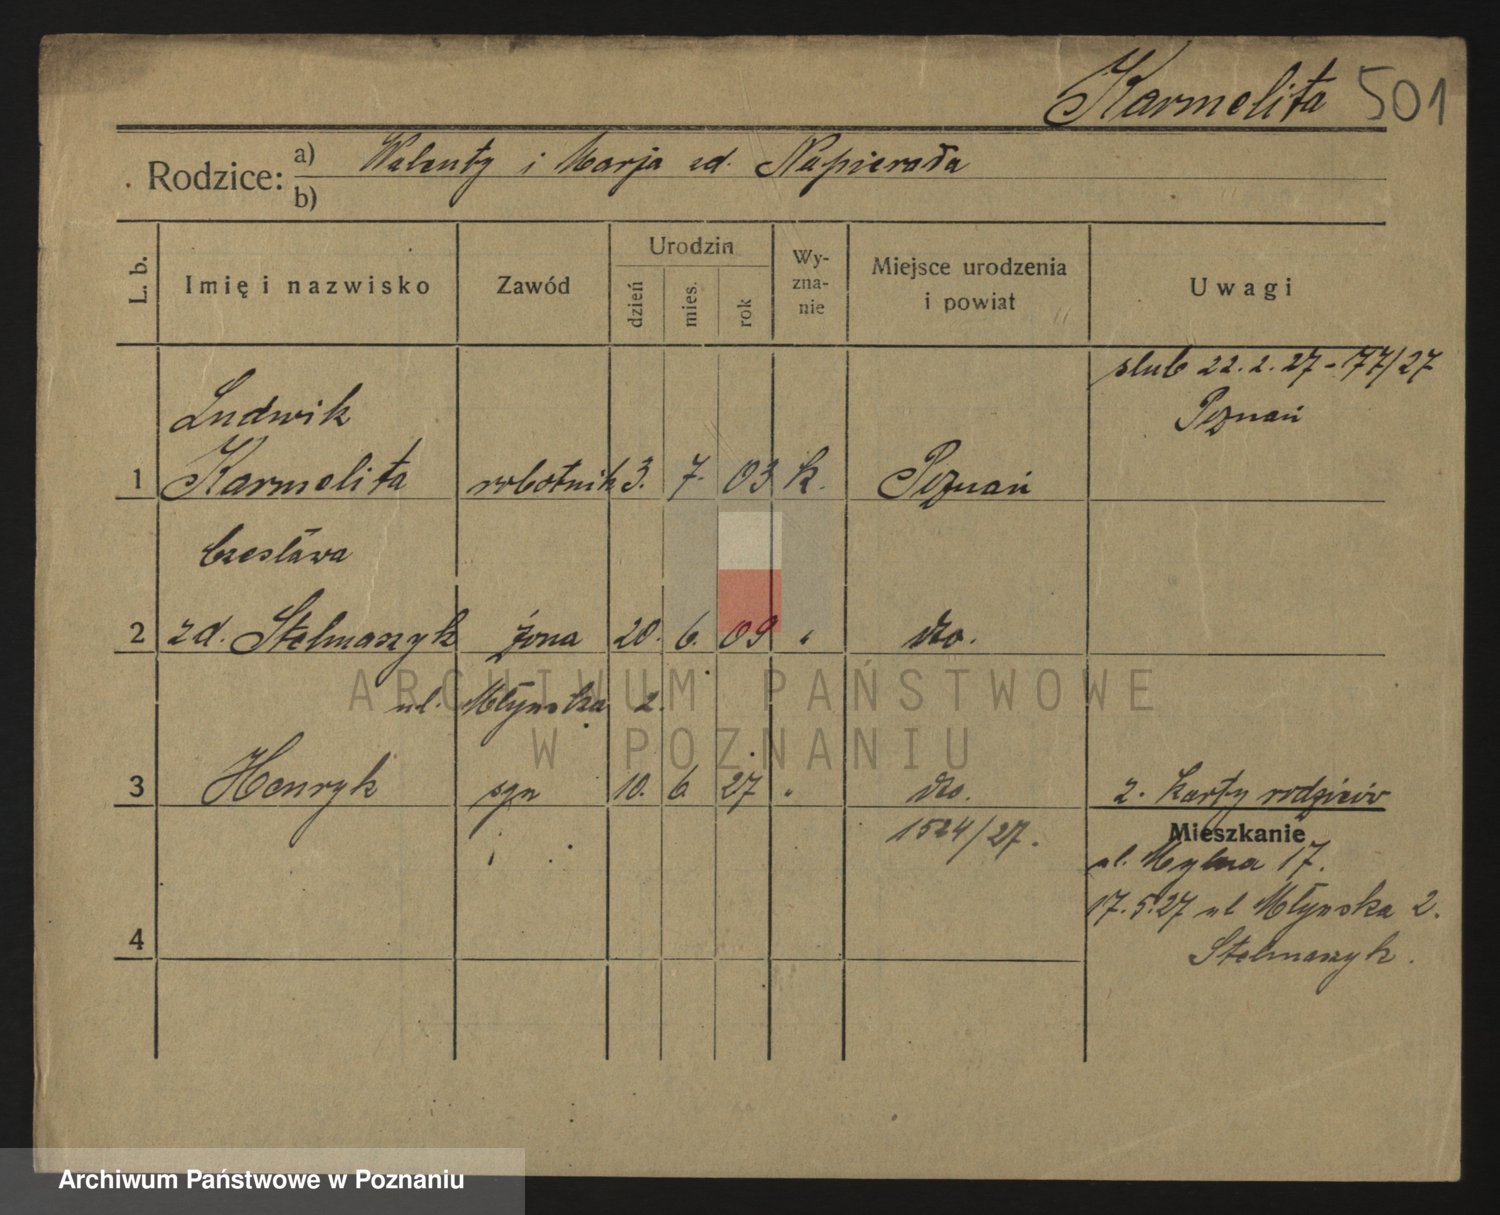 Karmelita 501
Rodzice: a) Walenty i Marja zd. Napierała
b)
L. b.
Imię i nazwisko
Zawód
Urodzin
dzień
mies.
rok
Wy-
zna-
nie
Miejsce urodzenia
i powiat
Uwagi
ślub 22. 2. 27 - 77/27
Poznań
Ludwik
1 Karmelita robotnik 3. 7. 03 k. Poznań
Czesława
2 zd. Stelmaszyk żona 20. 6. 09 " dto.
ul. Młyńska 2.
3 Henryk syn 10. 6. 27 " dto. 2. Karty rodziców
1524/27.
Mieszkanie
ul. Mylna 17.
17. 5. 27 ul Młyńska 2.
4
Stelmaszyk.
ARCHIWUM PAŃSTWOWE
W POZNANIU
Archiwum Państwowe w Poznaniu